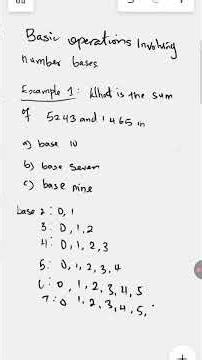 Basic operations Involving
number bases
Example 1: What is the sum
of 5243 and 1465 in
a) base 10
b) base seven
c) base nine
base 2: 0, 1
3: 0, 1, 2
4: 0, 1, 2, 3
5: 0, 1, 2, 3, 4
6: 0, 1, 2, 3, 4, 5
7: 0 1, 2, 3, 4, 5,